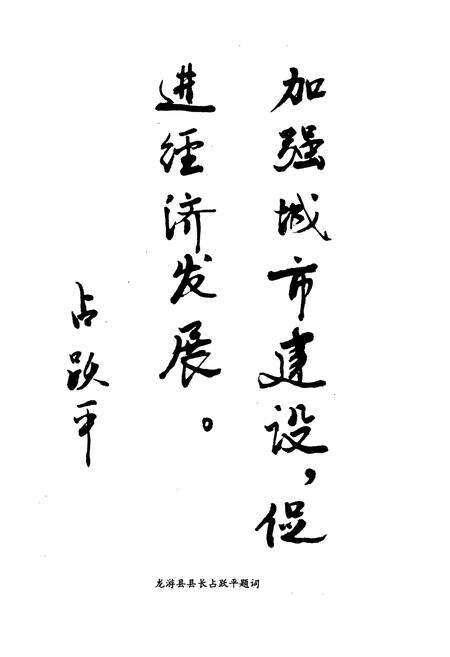 加强城市建设,促
进经济发展。
占跃平
龙游县县长占跃平题词